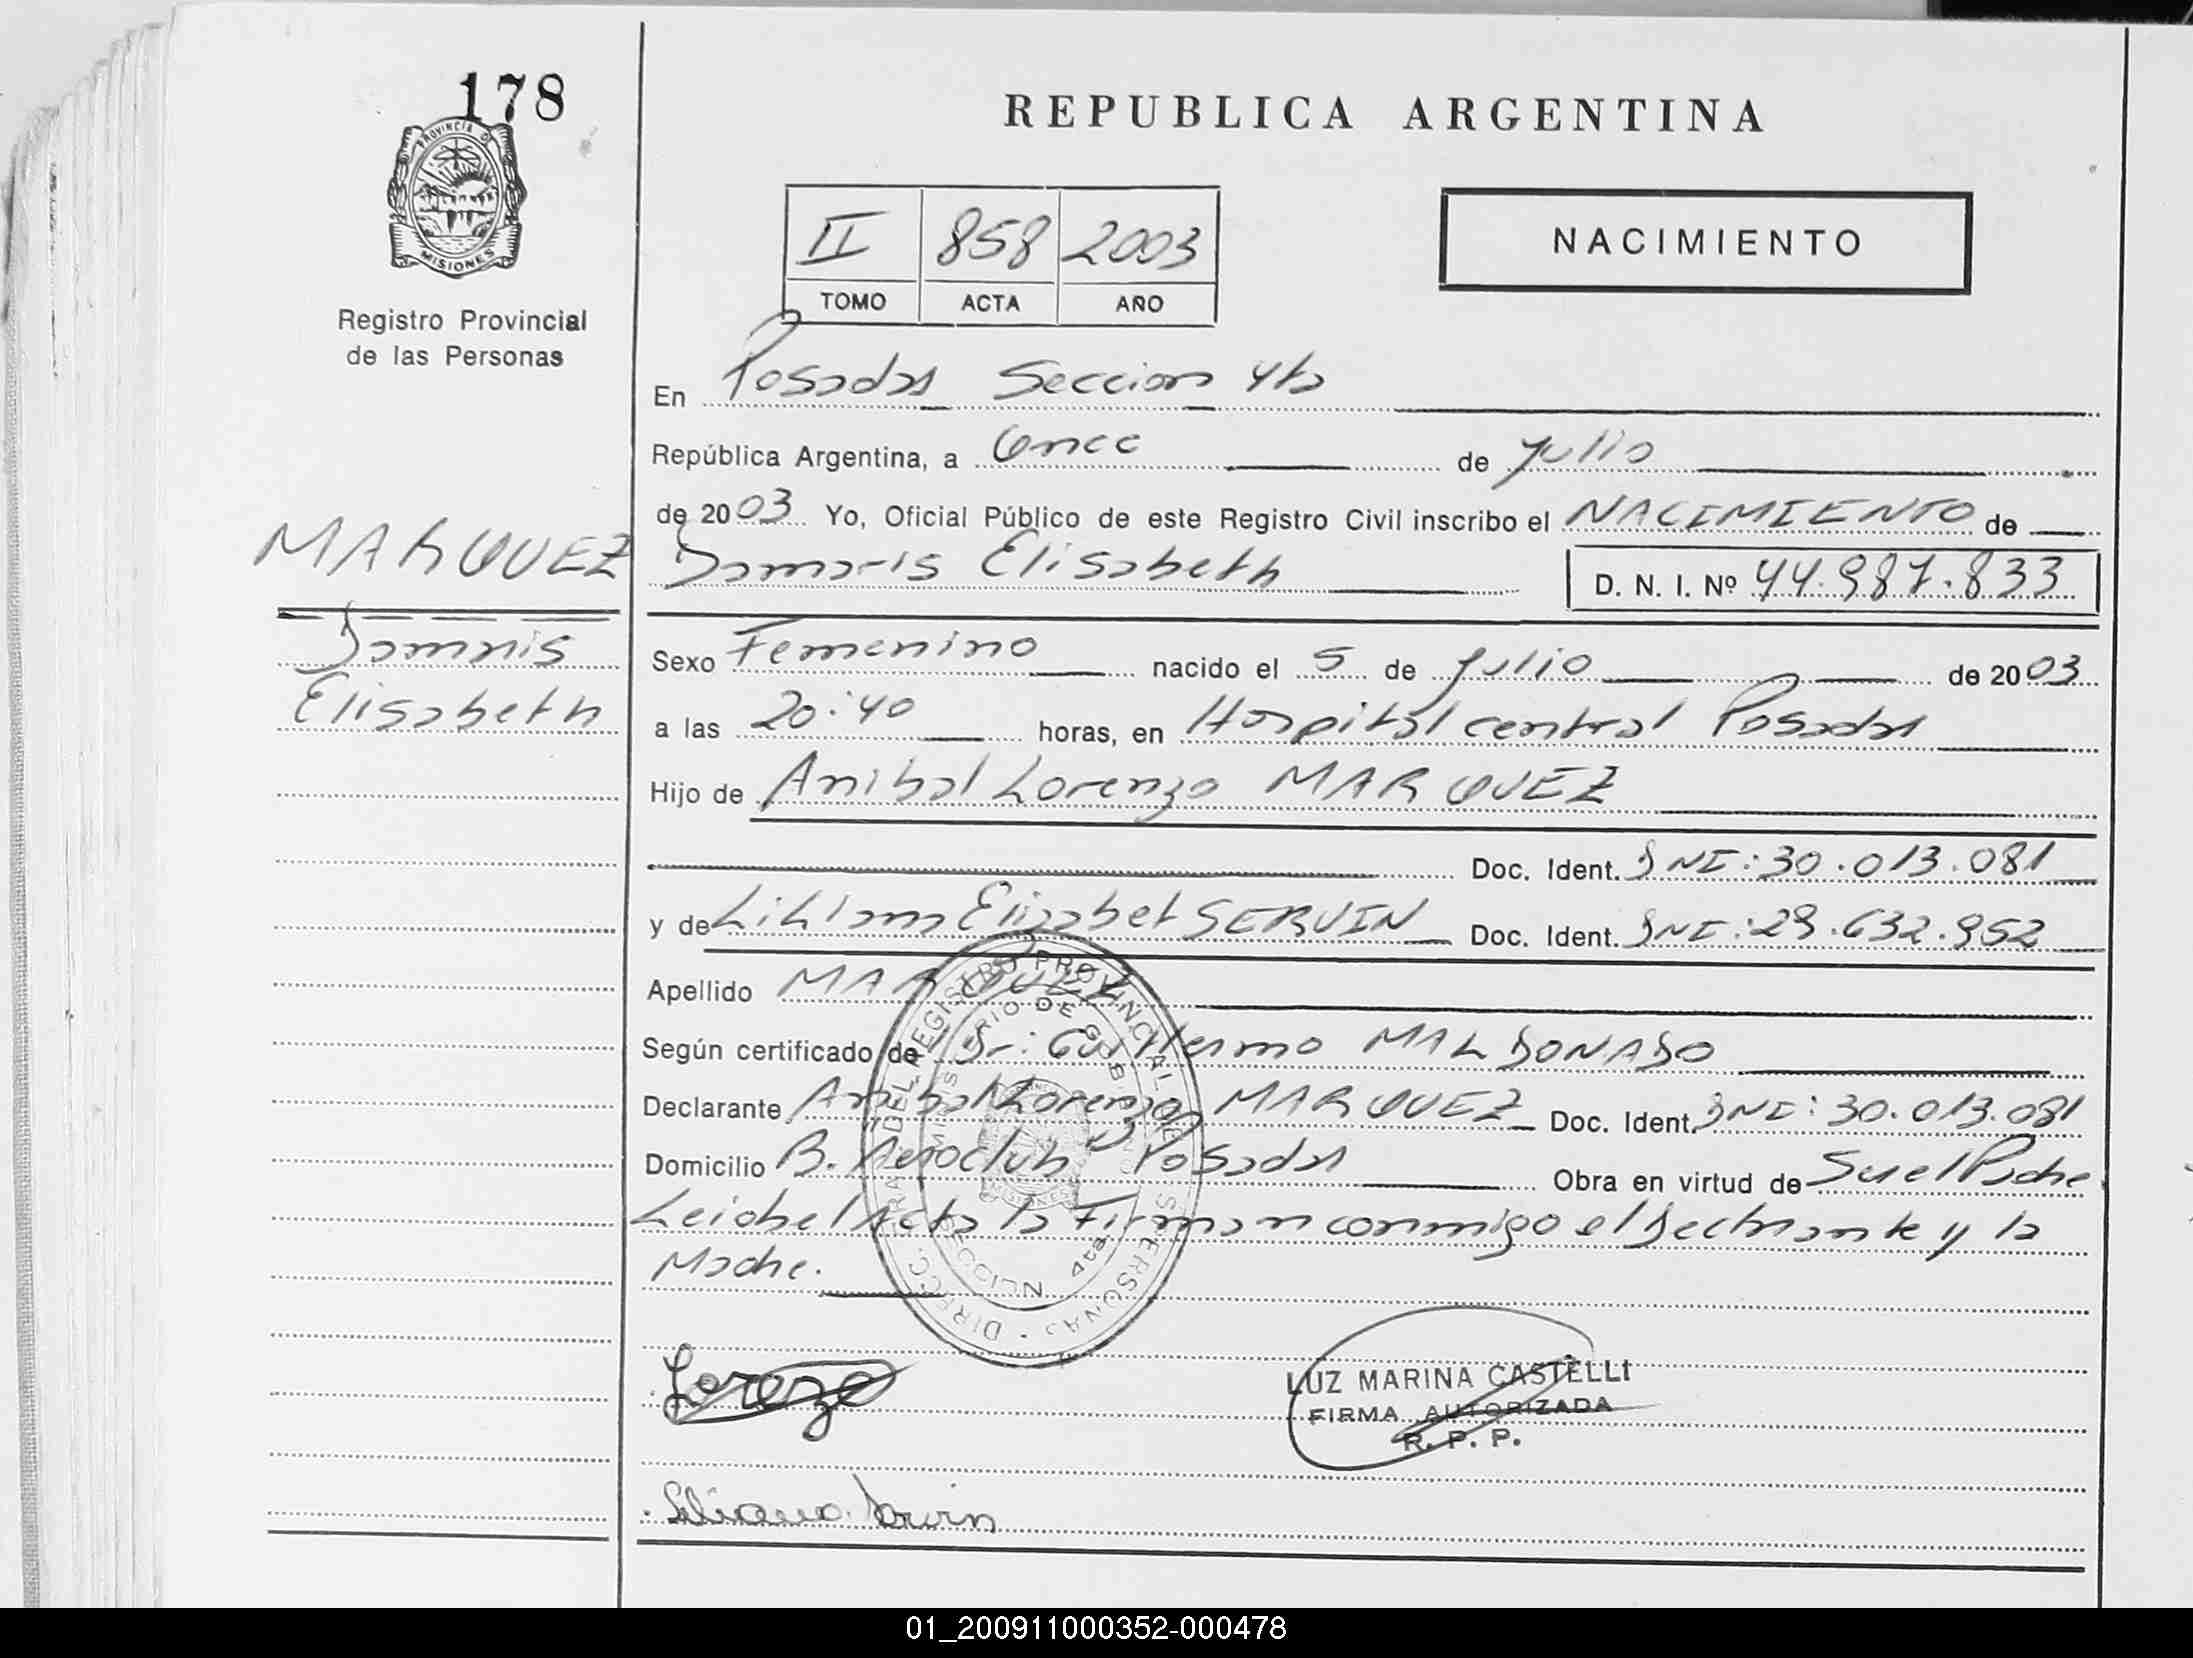 178
PROVINCIA D
MISIONES
Registro Provincial
de las Personas
REPUBLICA ARGENTINA
II 858 2003
TOMO ACTA AÑO
NACIMIENTO
En Posadas Seccion 4ta
República Argentina, a Once de Julio
de 2003 Yo, Oficial Público de este Registro Civil inscribo el NACIMIENTO de
MARQUEZ
Damaris Elisabeth D. N. I. Nº 44.987.833
Damaris
Elisabeth
Sexo Femenino nacido el 5 de Julio de 2003
a las 20:40 horas, en Hospital central Posadas
Hijo de Anibal Lorenzo MARQUEZ
Doc. Ident. DNI: 30.013.081
y de Liliana Elizabet SERVIN Doc. Ident. DNI: 29.632.952
Apellido MARQUEZ
Según certificado de Dr: Guillermo MALDONADO
Declarante Anibal Lorenzo MARQUEZ Doc. Ident. DNI: 30.013.081
Domicilio B. Aeroclub Posadas Obra en virtud de Ser el Padre
Leida el Acta la Firman conmigo el Declarante y la
Madre.
DEL REGISTRO PROVINCIAL DE PERSONAS
SECCION 4ta.
MISIONES
Lorenzo
LUZ MARINA CASTELLI
FIRMA AUTORIZADA
R. P. P.
Liliana Servin
01_200911000352-000478